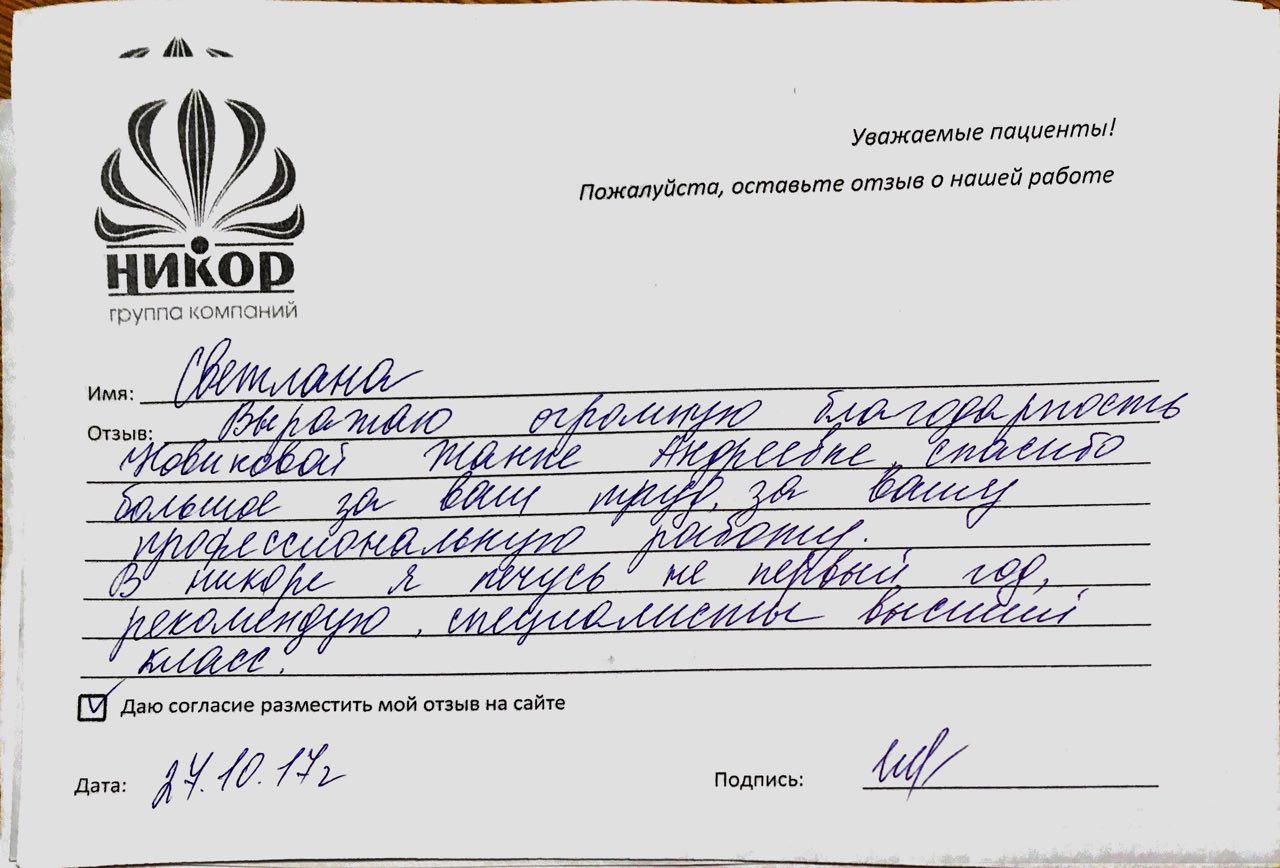 НИКОР
группа компаний
Уважаемые пациенты!
Пожалуйста, оставьте отзыв о нашей работе
Имя: Светлана
Отзыв: Выражаю огромную благодарность
Новиковой Жанне Андреевне, спасибо
большое за ваш труд, за вашу
профессиональную работу.
В никоре я лечусь не первый год,
рекомендую, специалисты высший
класс.
Даю согласие разместить мой отзыв на сайте
Дата: 27.10.17г
Подпись: